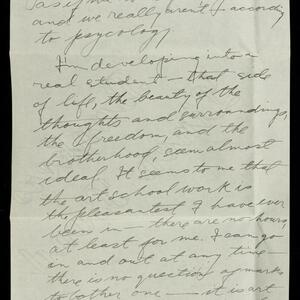 and we really aren't - according
to psycology
I'm developing into a
real student - that side
of life, the beauty of the
thoughts and surroundings,
the freedom, and the
brotherhood, seem almost
ideal. It seems to me that
the art school work is
the pleasantest I have ever
been in - there are no hours,
at least for me. I can go
in and out at any time -
there is no question of marks
to bother one - it is art